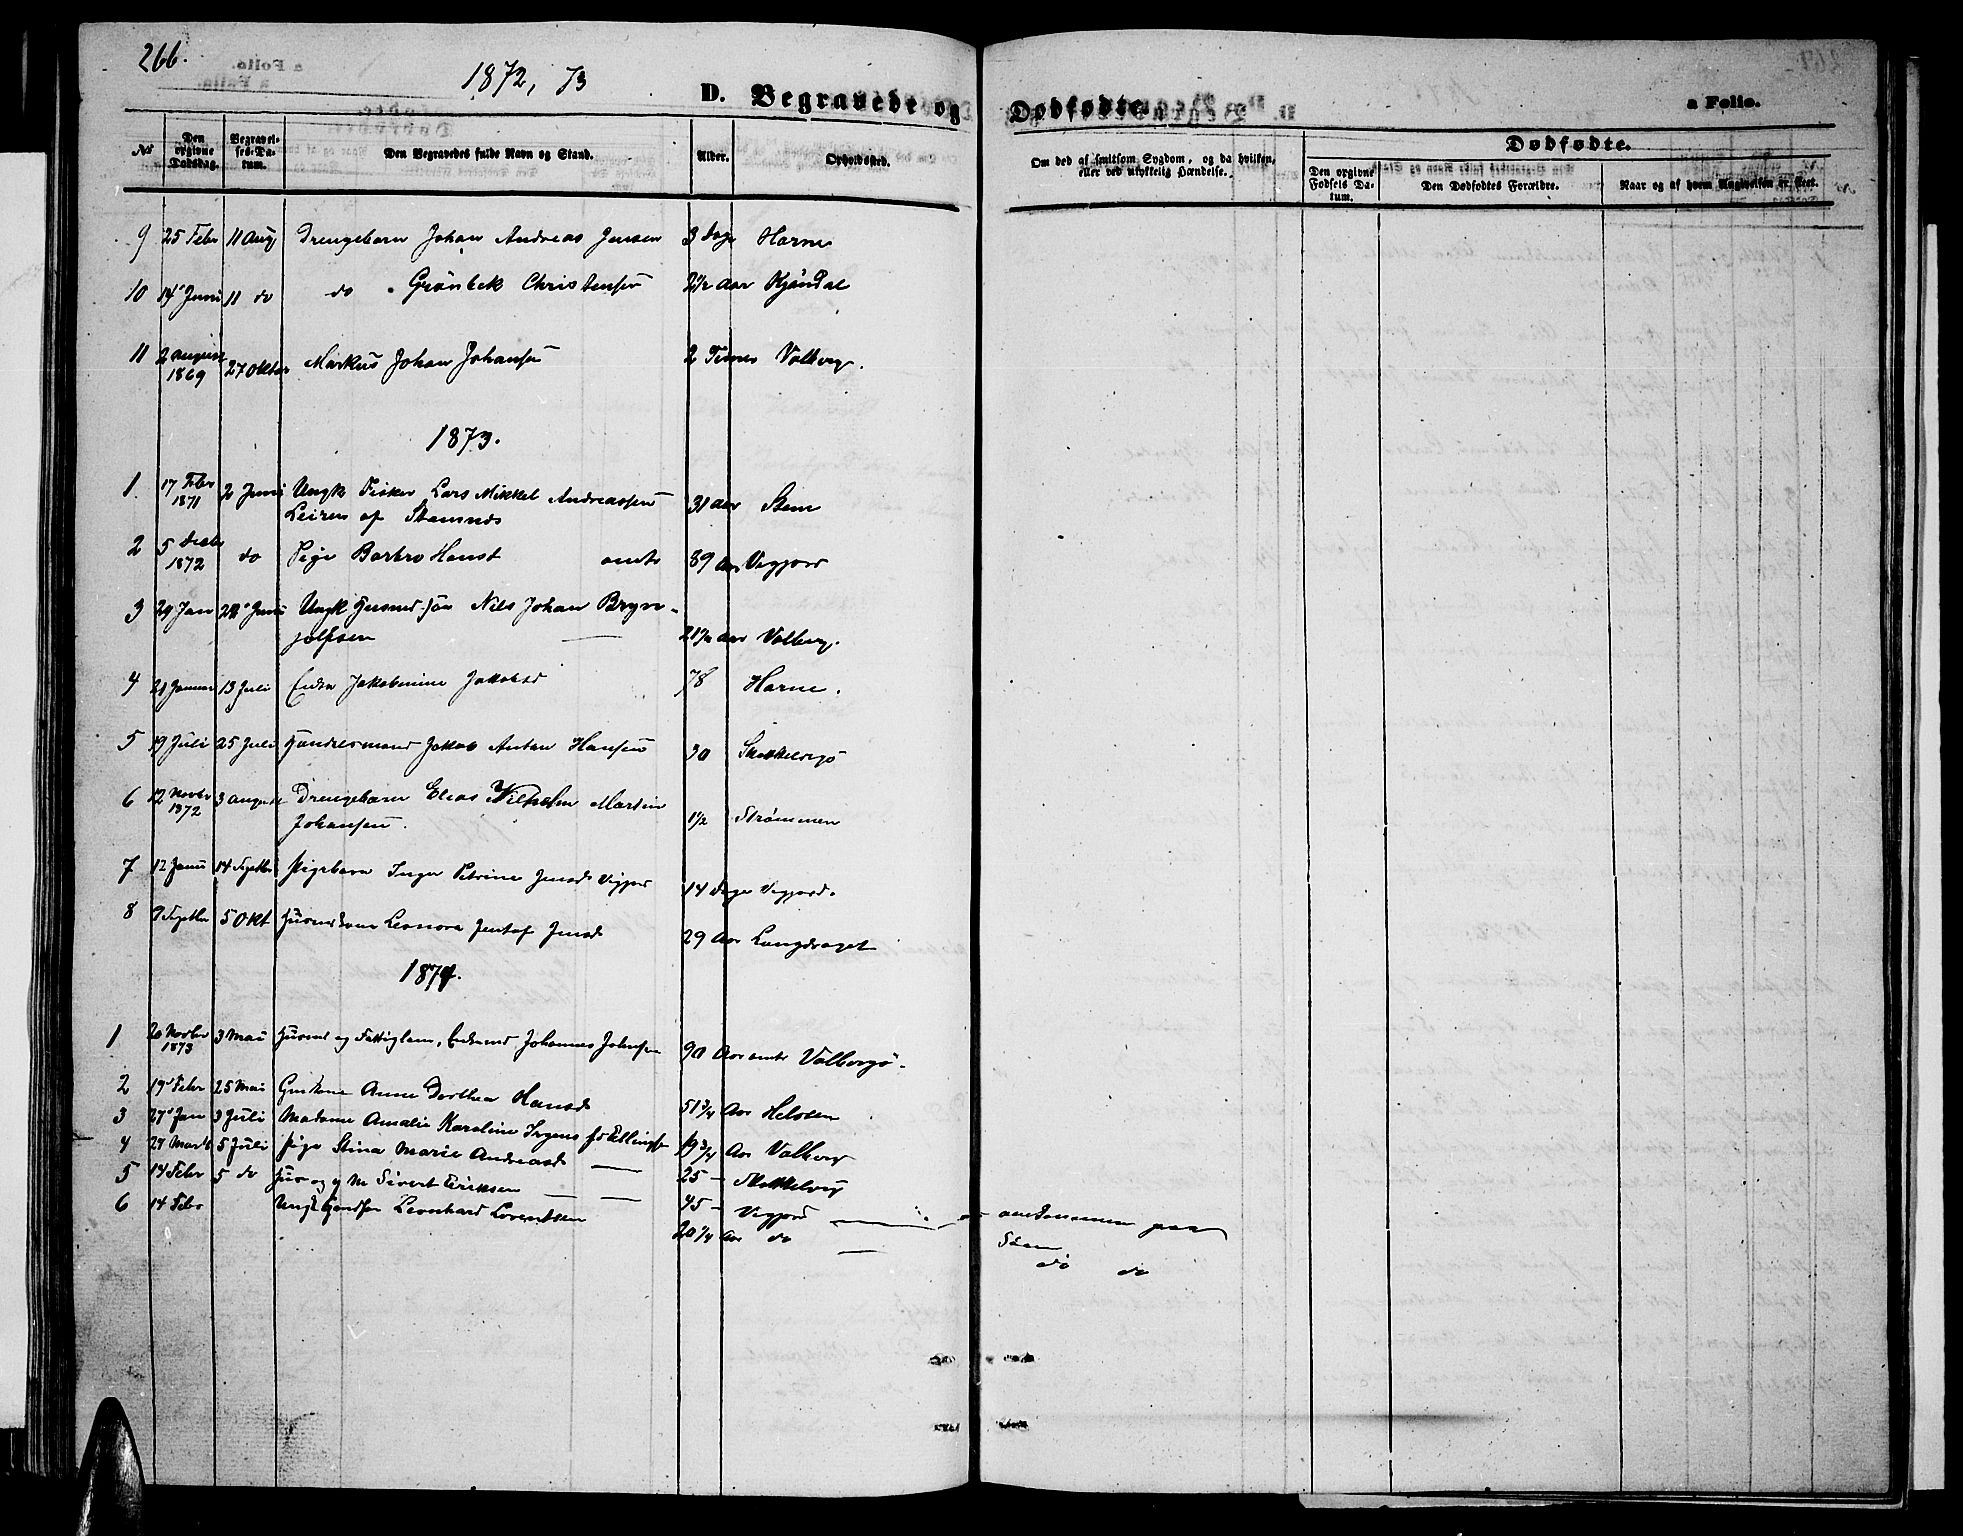 266.
1872, 73
D. Begravede og Dødfødte.
a Folio.
No
Den opgivne Dødsdag.
Begravelses-Datum.
Den Begravedes fulde Navn og Stand.
Alder.
Opholdssted.
Om død af smitsom Sygdom, og da hvilken, eller ved ulykkelig Hændelse.
Dødfødte.
Den opgivne Fødsels Datum.
Den Dødfødtes Forældre.
Naar og af hvem Angivelsen er skeet.
9 25 Febr 11 Aug Drengebarn Johan Andreas Jensen 3 Dage Harne
10 14 Juni 11 do do Grönbek Christensen 2 1/2 Aar Kjöndal
11 2 August 1869 27 Oktbr Markus Johan Johansen 2 Timer Valberg.
1873.
1. 17 Febr 1871 2 Juni Ungk Fisker Lars Mikkel Andreassen
Leiren af Stamnes 31 Aar Steen
2 5 Decbr 1872 do Pige Barbro Hansd 89 Aar Vegjord
3 24 Jan 24 Juni Ungk Nils Johan Bryn-
jolfsen 21 1/2 Aar Valberg.
4 21 Januar 13 Juli Enka Jakobmine Jakobsd 78 Harne.
5 19 Juli 25 Juli Jakob Antan Hansen 30
6 12 Novbr 1872 3 August Drengebarn Elias Vilhelm Martin
Johansen. 1 1/2 Strømmen
7 12 Januar 14 Septbr Pigebarn Inga Petrine Jensd Vegjord 14 Dage Vegjord.
8 9 Septbr 5 Okt Leonora Jentof Jensd 29 Aar Langdraget
1874.
1 20 Novbr 1873 3 Mai og Fattiglem, Johannes Johnsen 90 Aar Valbergö.
2 19 Febr 25 Mai Anne Dorthea Hansd 51 3/4 Aar Helosen
3 27 Jan 3 Juli Madame Amalie Karoline Irgens f Ellingsen 19 3/4 Aar Valberg
4 24 Marts 5 Juli Pige Stina Marie Andreasd 25
5 14 Febr 5 do Sivert Eriksen 45 Vegjord omkommen paa
Söen
6 14 Febr Leonhard Lorentsen 20 1/4 Aar do do do